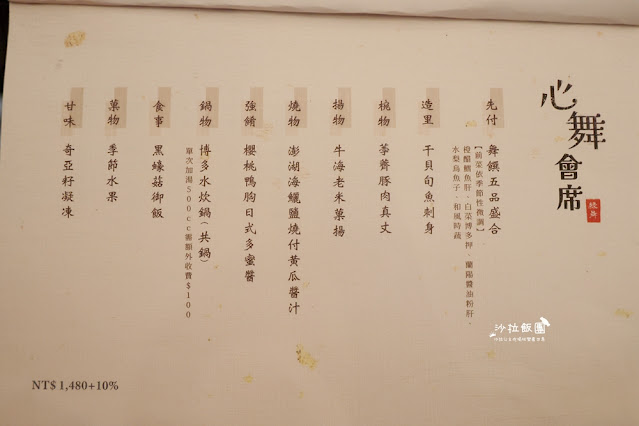 心舞會席
先付
舞饌五品盛合
【前菜依季節性微調】
橙醋鱈魚肝．白菜博多押　蘭陽醬油粉肝．
水梨烏魚子．和風時蔬
造里
干貝旬魚刺身
椀物
荸薺豚肉真丈
揚物
牛海老米菓揚
燒物
澎湖海鱺鹽燒付黃瓜醬汁
強餚
櫻桃鴨胸日式多蜜醬
鍋物
博多水炊鍋(共鍋)
單次加湯500cc需額外收費$100
食事
黑蠔菇御飯
菓物
季節水果
甘味
奇亞籽凝凍
NT$ 1,480+10%
沙拉飯團